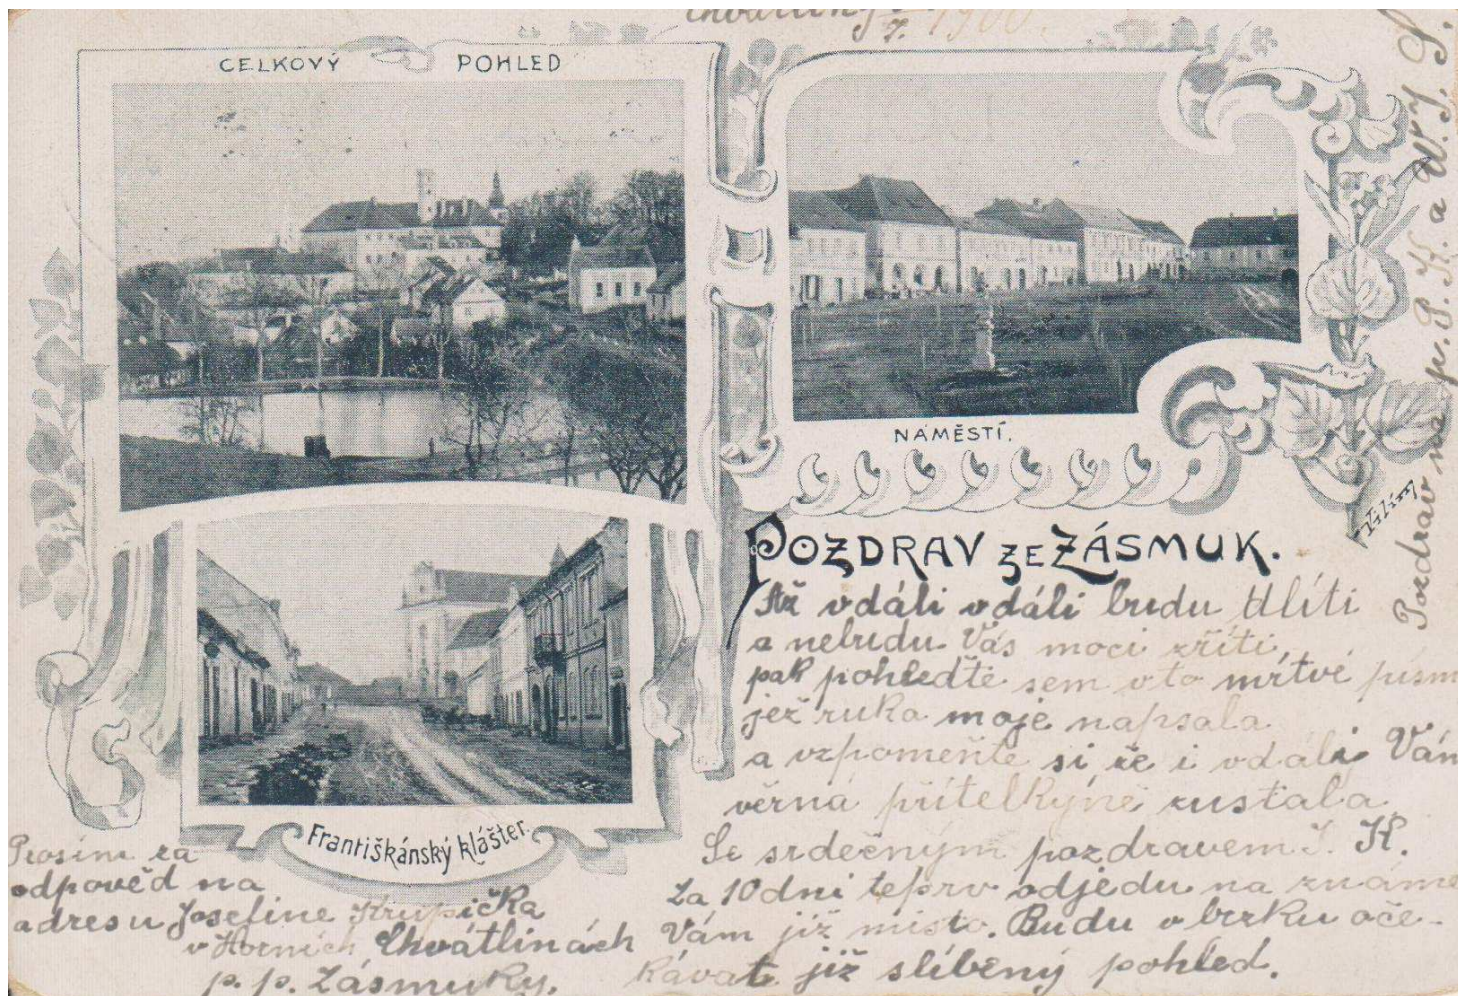 1900.
CELKOVÝ POHLED
NÁMĚSTÍ.
Vilím
POZDRAV ZE ZÁSMUK.
Až v dáli v dáli budu dlíti
a nebudu Vás moci zříti,
pak pohleďte sem v to mrtvé písm
jež ruka moje napsala
a vzpomeňte si že i v dáli Vám
věrná přítelkyně zustala.
Se srdečným pozdravem J. K.
Za 10 dni teprv odjedu na známe
Vám již misto. Budu v brzku oče-
kávat již slíbený pohled.
Františkánský klášter.
Prosím za
odpověd na
adresu Josefine Krupička
v Horních Chvátlinách
p. p. Zásmuky.
Pozdrav na P. K. a W. J. S.